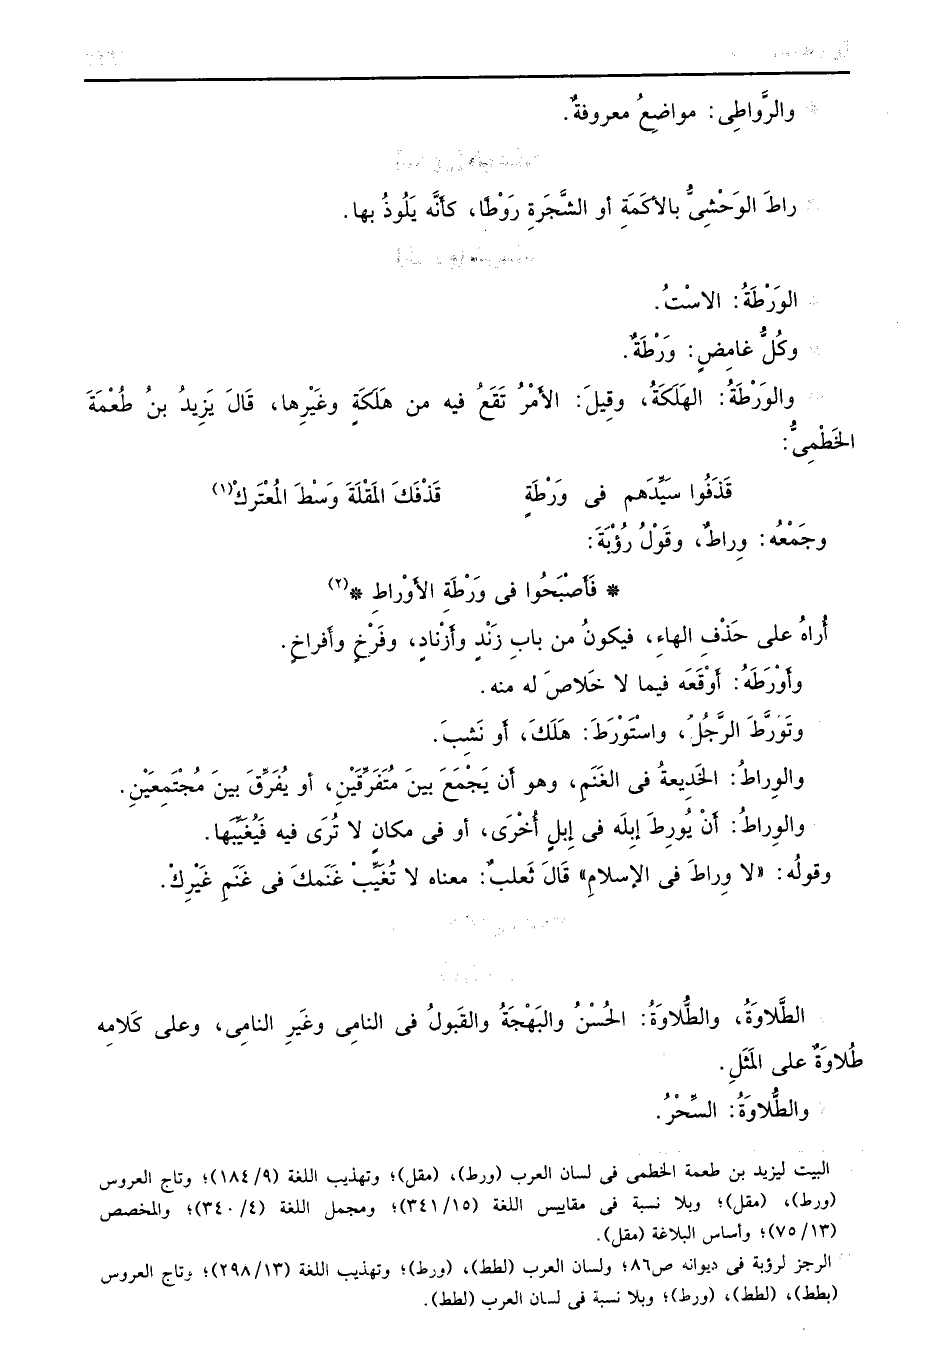 * والرَّواطِى: مواضِعُ معروفةٌ.
* راطَ الوَحْشِىُّ بالأكَمَةِ أو الشَّجَرةِ رَوْطًا، كأنَّه يَلُوذُ بها.
* الوَرْطَةُ: الاسْتُ.
* وكُلُّ غامِضٍ: وَرْطَةٌ.
والوَرْطَةُ: الهَلَكَةُ، وقِيلَ: الأمْرُ تَقَعُ فيه من هَلَكَةٍ وغَيْرِها، قَالَ يَزِيدُ بنُ طُعْمَةَ
الخَطْمِىُّ:
قَذَفُوا سَيِّدَهم فى وَرْطَةٍ قَذْفَكَ المَقْلَةَ وَسْطَ المُعْتَرَكْ(١)
وجَمْعُه: وِراطٌ، وقَوْلُ رُؤْبَةَ:
* فَأَصْبَحُوا فى وَرْطَةِ الأَوْراطِ *(٢)
أُراهُ على حَذْفِ الهاءِ، فيكونُ من بابِ زَنْدٍ وأزْنادٍ، وفَرْخٍ وأفراخٍ.
وأَوْرَطَهُ: أوْقَعَه فيما لا خَلاصَ له منه.
وتَوَرَّطَ الرَّجُلُ، واسْتَوْرَطَ: هَلَكَ، أو نَشِبَ.
والوِراطُ: الخَدِيعةُ فى الغَنَمِ، وهو أن يَجْمَعَ بينَ مُتَفَرِّقَيْنِ، أو يُفَرِّقَ بينَ مُجْتَمِعَيْنِ.
والوِراطُ: أنْ يُورِطَ إبِلَه فى إبِلٍ أُخْرَى، أو فى مكانٍ لا تُرَى فيه فَيُغَيِّبَها.
وقولُه: «لا وِراطَ فى الإسلامِ» قَالَ ثَعلبٌ: معناه لا تُغَيِّبْ غَنَمكَ فى غَنَمِ غَيْرِكْ.
الطَّلاوَةُ، والطُّلاوَةُ: الحُسْنُ والبَهْجَةُ والقَبولُ فى النامِى وغَيرِ النامِى، وعلى كَلامِه
طُلاوَةٌ على المَثَلِ.
* والطُّلاوَةُ: السِّحْرُ.
البيت ليزيد بن طعمة الخطمى فى لسان العرب (ورط)، (مقل)؛ وتهذيب اللغة (٩/ ١٨٤)؛ وتاج العروس
(ورط)، (مقل)؛ وبلا نسبة فى مقاييس اللغة (١٥/ ٣٤١)؛ ومجمل اللغة (٤/ ٣٤٠)؛ والمخصص
(١٣/ ٧٥)؛ وأساس البلاغة (مقل).
الرجز لرؤبة فى ديوانه ص٨٦؛ ولسان العرب (لطط)، (ورط)؛ وتهذيب اللغة (١٣/ ٢٩٨)؛ وتاج العروس
(بطط)، (لطط)، (ورط)؛ وبلا نسبة فى لسان العرب (لطط).